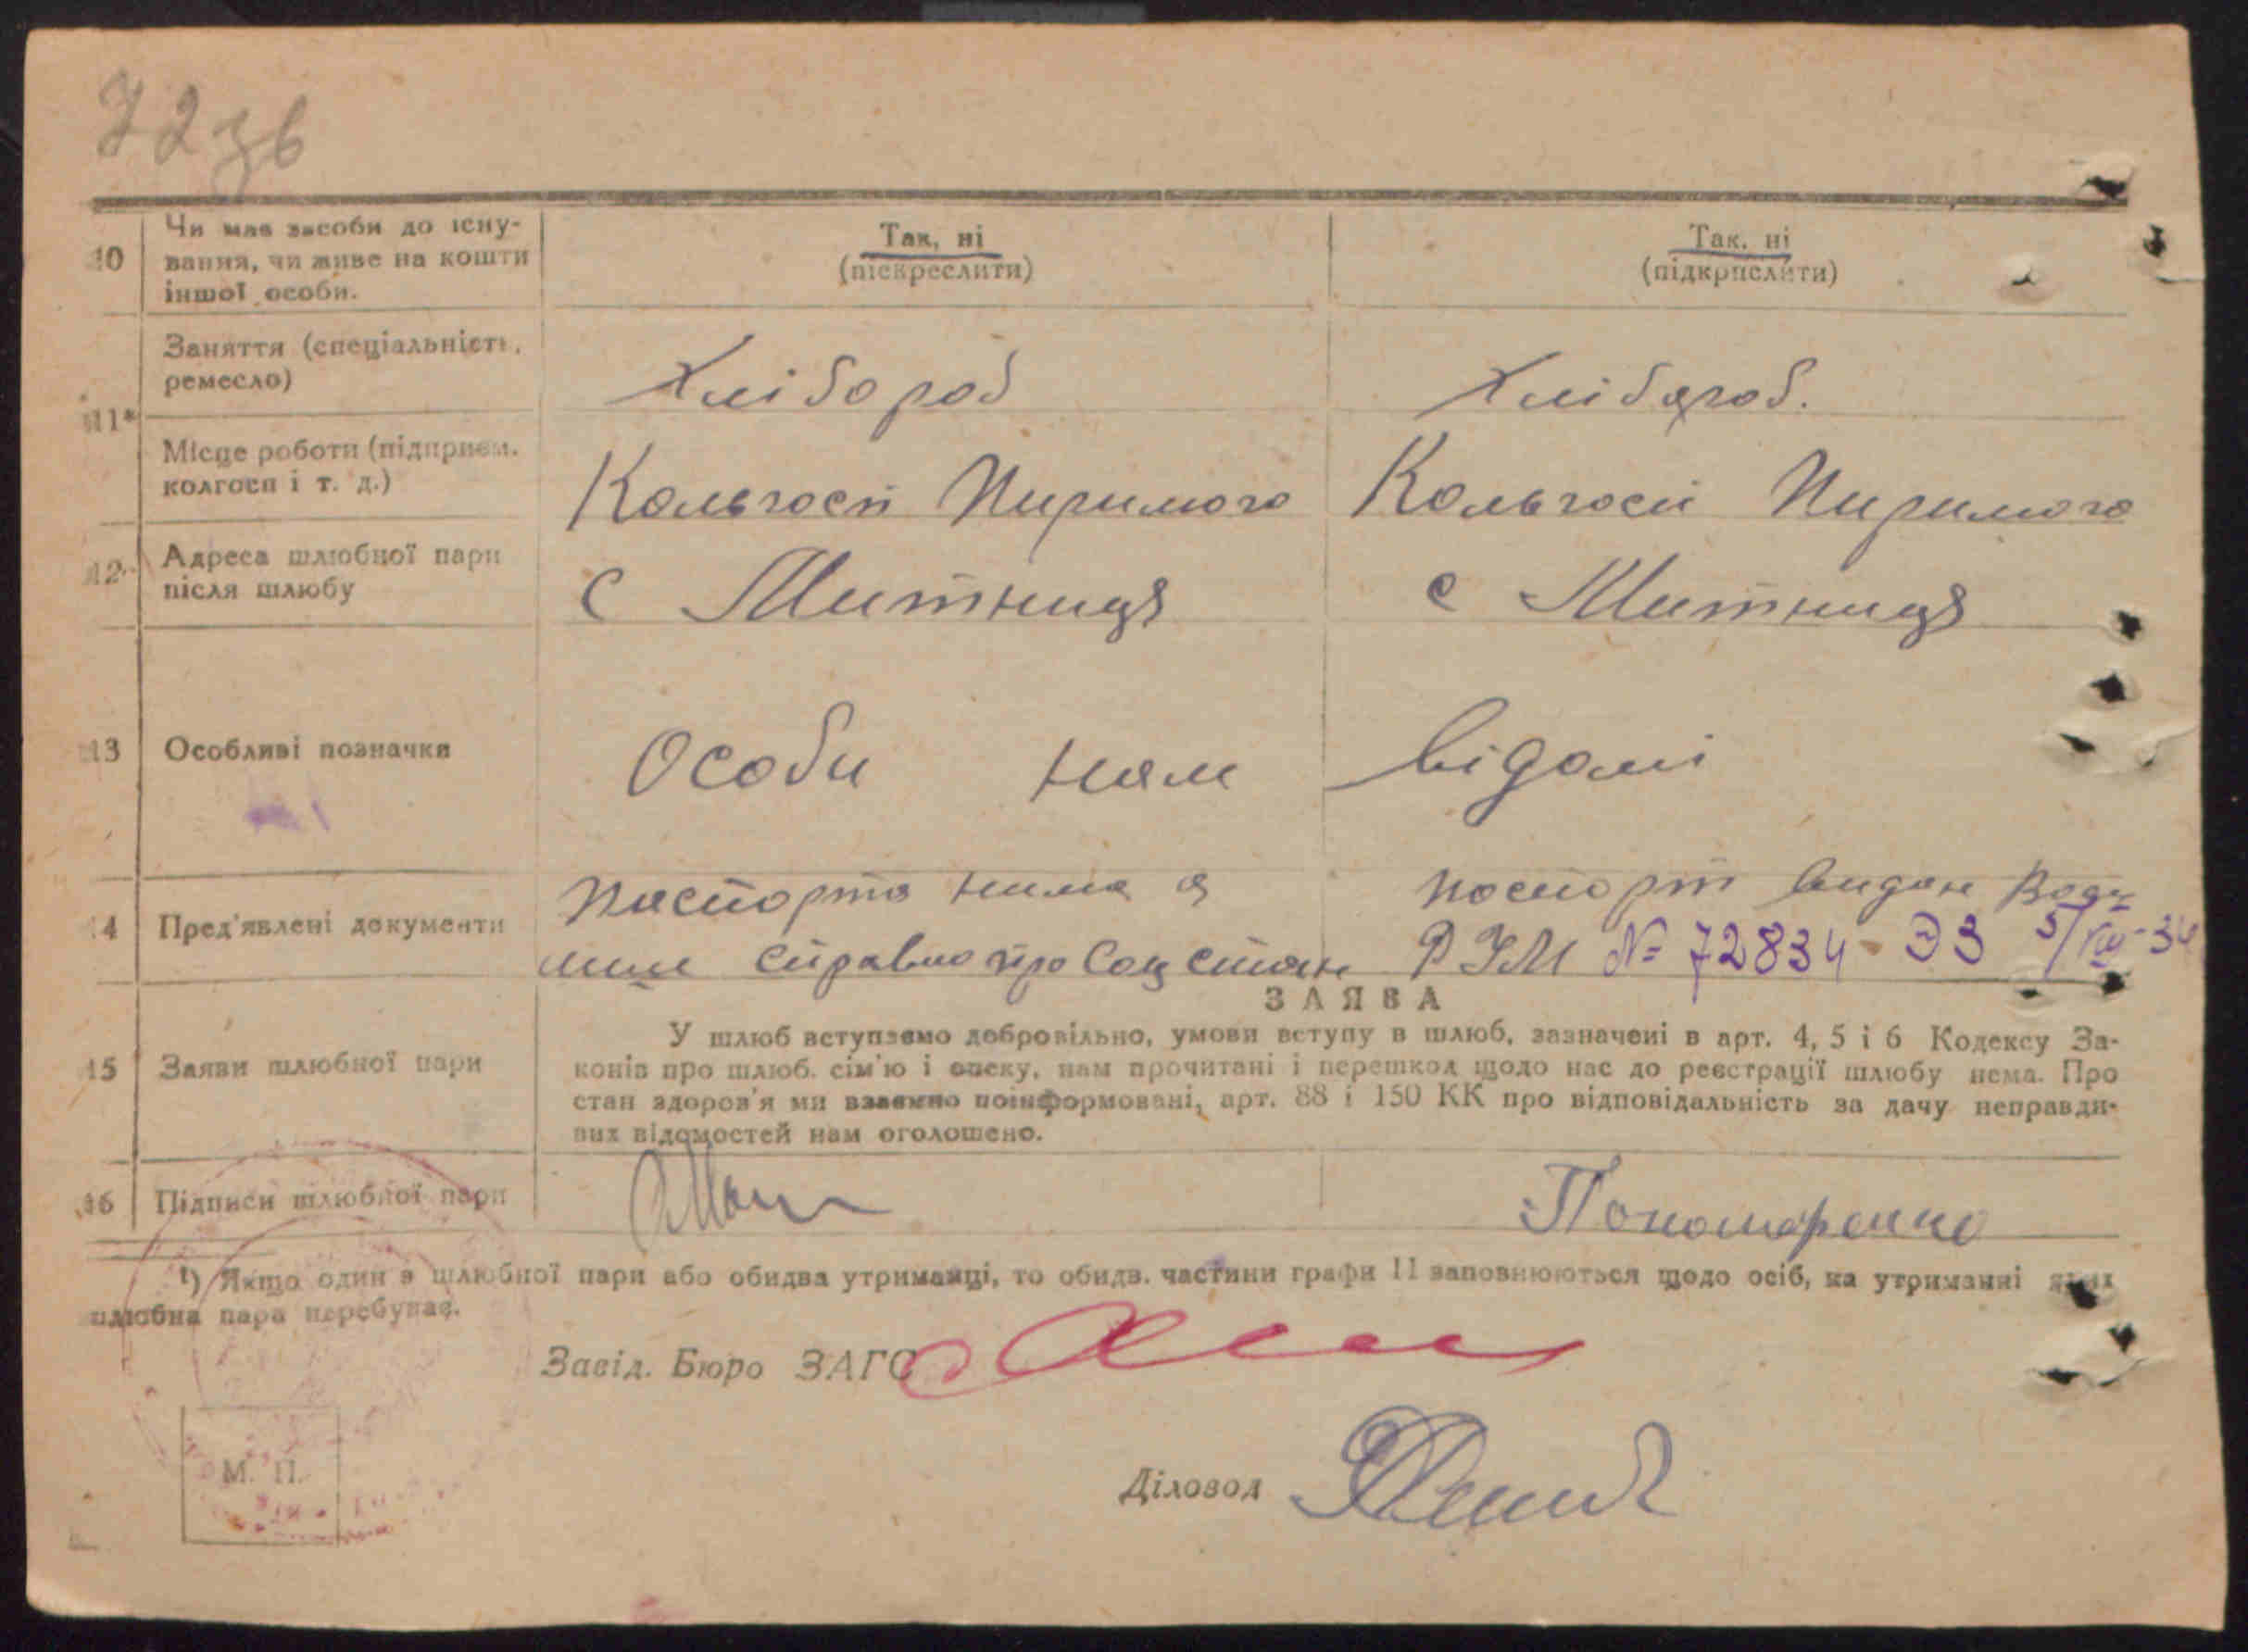 72 зв
10 Чи має засоби до існу-
вання, чи живе на кошти
іншої особи.
Так, ні
(пієкреслити)
Так, ні
(підкрислити)
11*
Заняття (спеціальність,
ремесло)
Хлібороб
Хлібороб.
Місце роботи (підприєм.
колгосп і т. д.)
Кольгосп
Кольгосп
12 Адреса шлюбної пари
після шлюбу
с Митниця
с Митниця
13 Особливі позначки
Особи нам відомі
14 Пред'явлені документи
паспорта нима а
лише справка про соц стан
паспорт видан
РУМ № 72834 - ЭЗ
15 Заяви шлюбної пари
ЗАЯВА
У шлюб вступаємо добровільно, умови вступу в шлюб, зазначені в арт. 4, 5 і 6 Кодексу За-
конів про шлюб. сім'ю і опеку, нам прочитані і перешкод щодо нас до реєстрації шлюбу нема. Про
стан здоров'я ми взаємно поінформовані, арт. 88 і 150 КК про відповідальність за дачу неправди-
вих відомостей нам оголошено.
16 Підписи шлюбної пари
Пономаренко
¹) Якщо один з шлюбної пари або обидва утриманці, то обидв. частини графи 11 заповнюються щодо осіб, на утриманні яких
шлюбна пара перебуває.
Завід. Бюро ЗАГС
М. П.
Діловод